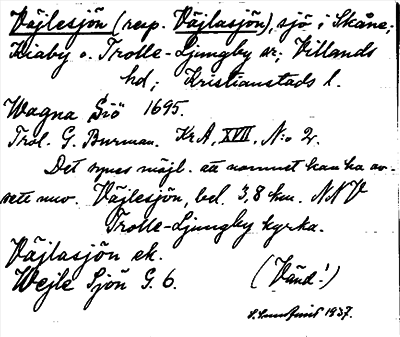 Väjlesjön (resp. Väjlasjön), sjö i Skåne;
Kiaby o. Trolle-Ljungby sr; Villands
hd; Kristianstads l.
Wagna Siö 1695.
Trol. G. Burman. KrA, XVII, N:o 2.
Det synes möjl. att namnet kan ha av-
sett nuv. Väjlesjön, bel. 3,8 km. NNV
Trolle-Ljungby kyrka.
Väjlasjön ek.
Wejle Sjön G. 6. (Vänd!)
1937.